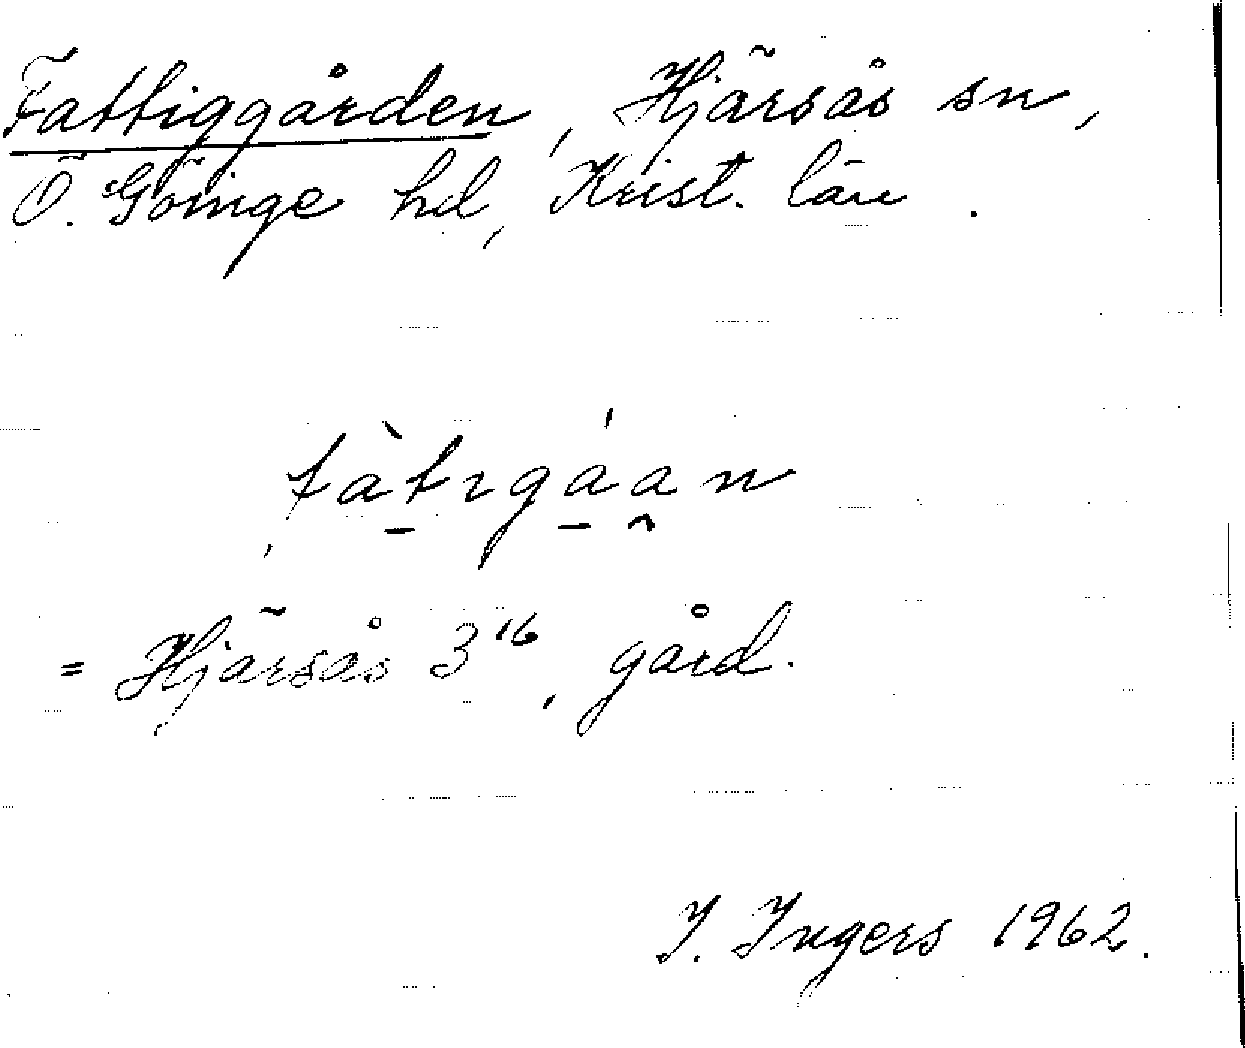 Fattiggården, Hjärsås sn,
Ö. Göinge hd, Krist. län.
fàtıgáan
= Hjärsås 3¹⁶, gård.
I. Ingers 1962.